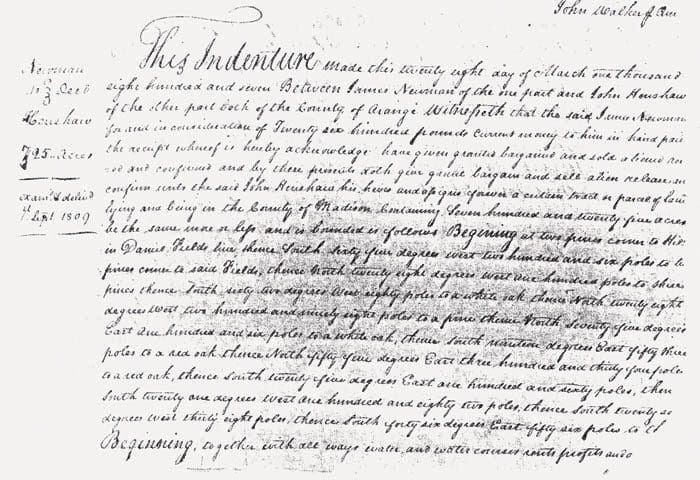 John Walker Jr
Newman
to } Deed
Henshaw
725 Acres
Exam.d & delivd
Sept 1809
This Indenture made this twenty eight day of March one thousand
eight hundred and seven Between James Newman of the one part and John Henshaw
of the other part both of the County of Orange Witnesseth that the said James Newman
for and in consideration of Twenty six hundred pounds Current money to him in hand paid
the receipt whereof is hereby acknowledge have given granted bargained and sold aliened
and confirmed and by these presents doth give grant bargain and sell alien release
confirm unto the said John Henshaw his heirs and assigns forever a certain tract or parcel of land
lying and being in the County of Madison Containing Seven hundred and twenty five acres
be the same more or less and is bounded as follows Begining at two pines corner to
in Daniel Fields line thence South sixty five degrees west two hundred and six poles to
pines corner to said Fields, thence North twenty eight degrees west one hundred poles to three
pines thence South sixty two degrees West eighty poles to a white oak thence North twenty eight
degrees West two hundred and ninety eight poles to a pine thence North Seventy five degrees
East one hundred and six poles to a white oak, thence South nineteen degrees East fifty three
poles to a red oak thence North fifty five degrees East three hundred and thirty four poles
to a red oak, thence South twenty five degrees East one hundred and sixty poles, then
South twenty one degrees west one hundred and eighty two poles, thence South twenty
degrees West thirty eight poles, thence South forty six degrees East fifty six poles to
Beginning, together with all ways water, and water courses profits and